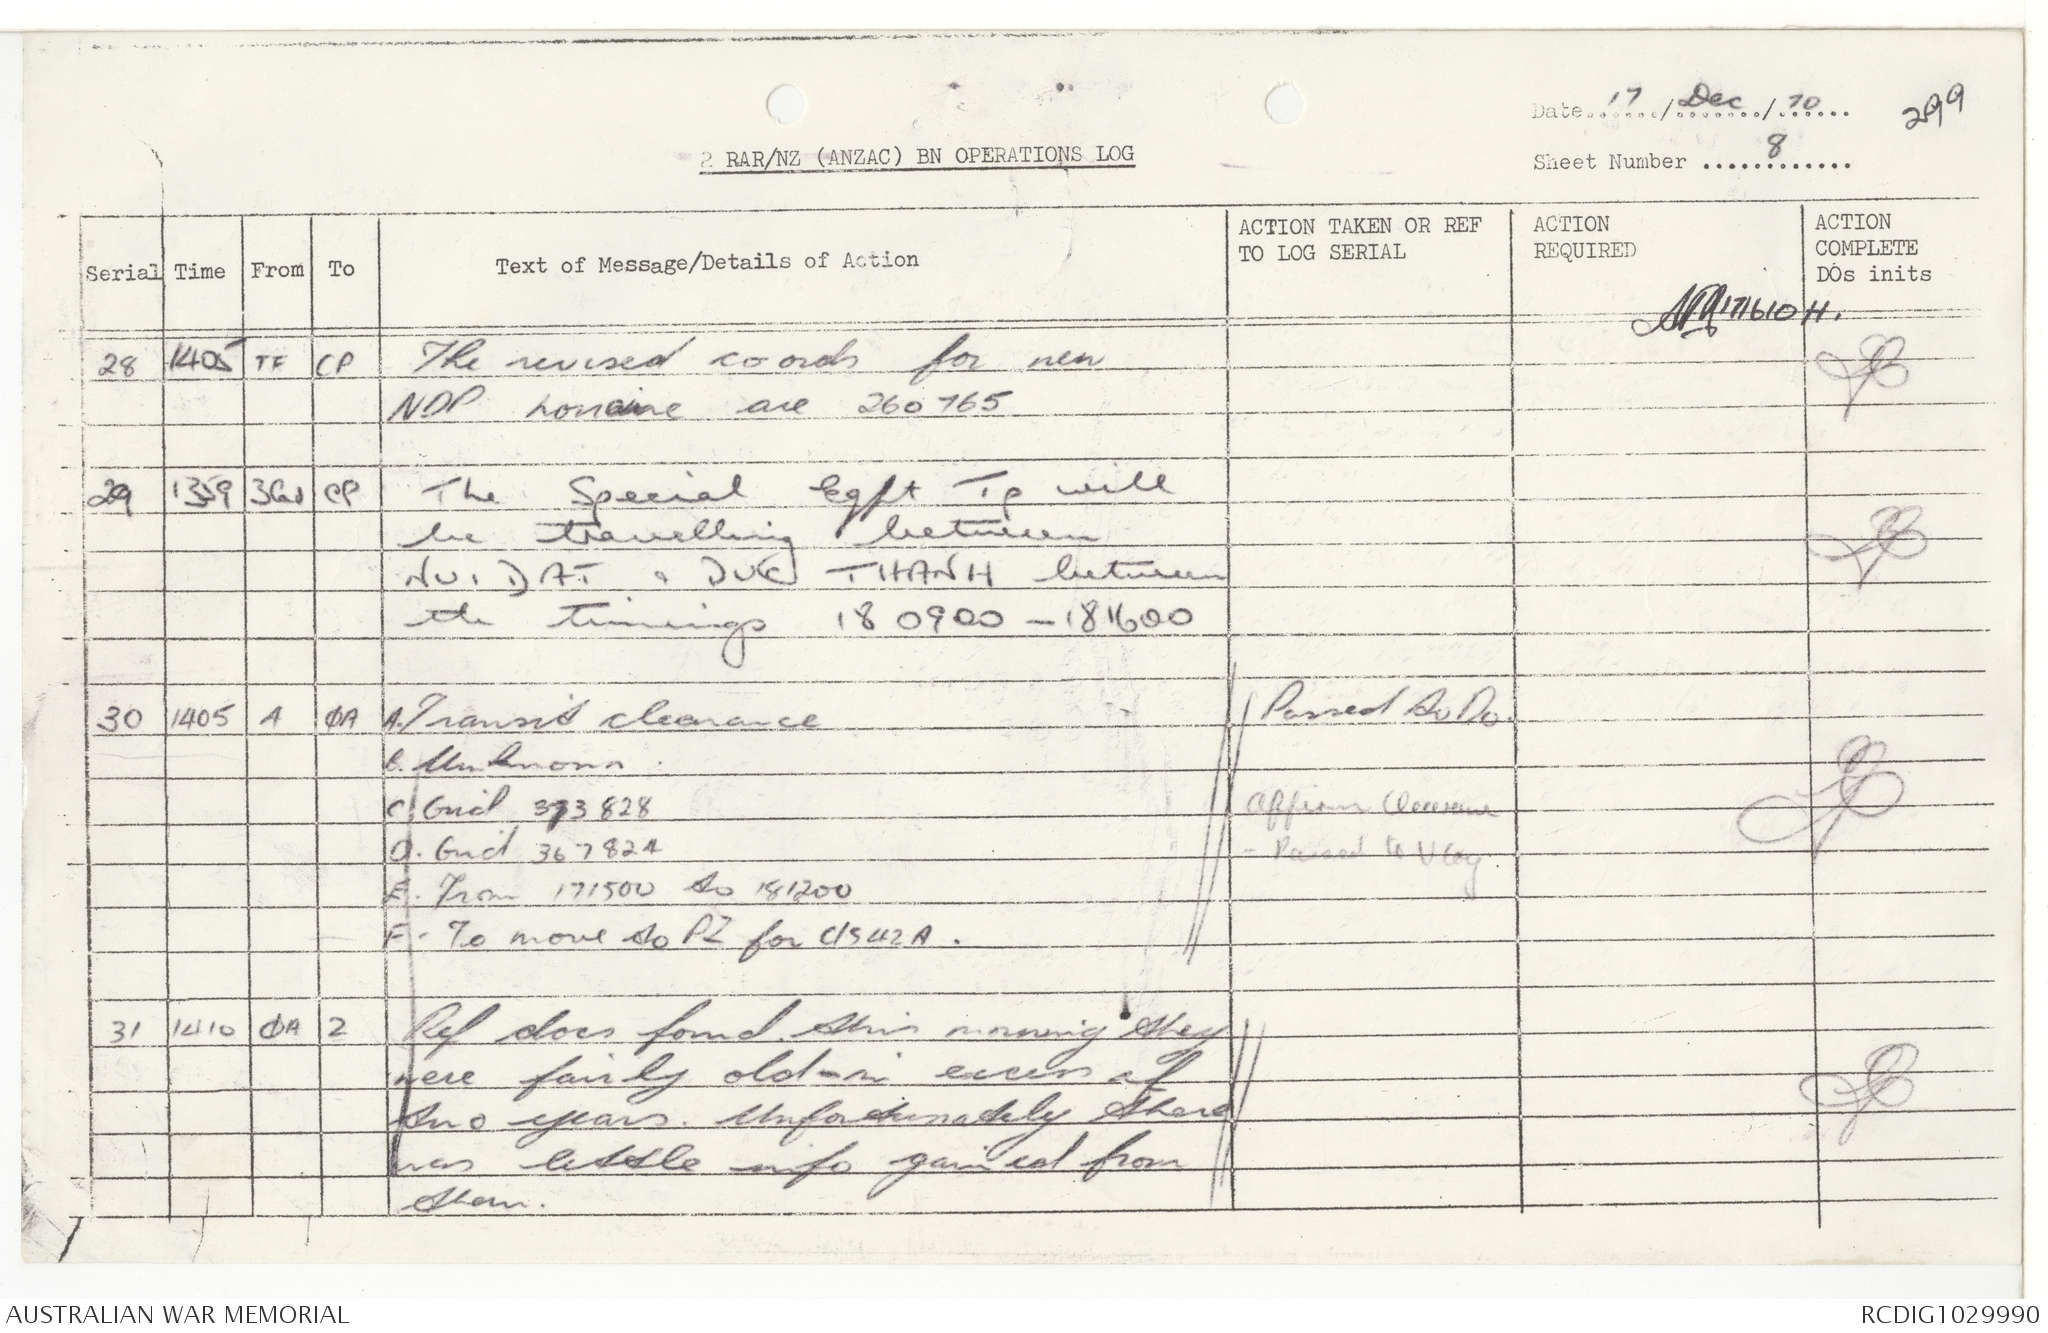 Date 17 / Dec / 70
299
2 RAR/NZ (ANZAC) BN OPERATIONS LOG
Sheet Number 8
Serial Time From To Text of Message/Details of Action ACTION TAKEN OR REF TO LOG SERIAL ACTION REQUIRED ACTION COMPLETE DOs inits
171610H.
28 1405 TF CP The revised coords for new
NDP are 260765
29 1359 CP The Special Eqpt Tp will
be travelling between
NUI DAT & DUC THANH between
the timings 180900 - 181600
30 1405 A ØA A. Transit clearance Passed to Do.
B. Unknown.
C. Grid 373828 Affirm Clearance
D. Grid 367824 - Passed to V Coy
E. From 171500 to 181200
F. To move to PZ for C/S 42A.
31 1410 ØA 2 Ref docs found this morning they
were fairly old - in excess of
two years. Unfortunately there
was little info gained from
them.
AUSTRALIAN WAR MEMORIAL
RCDIG1029990